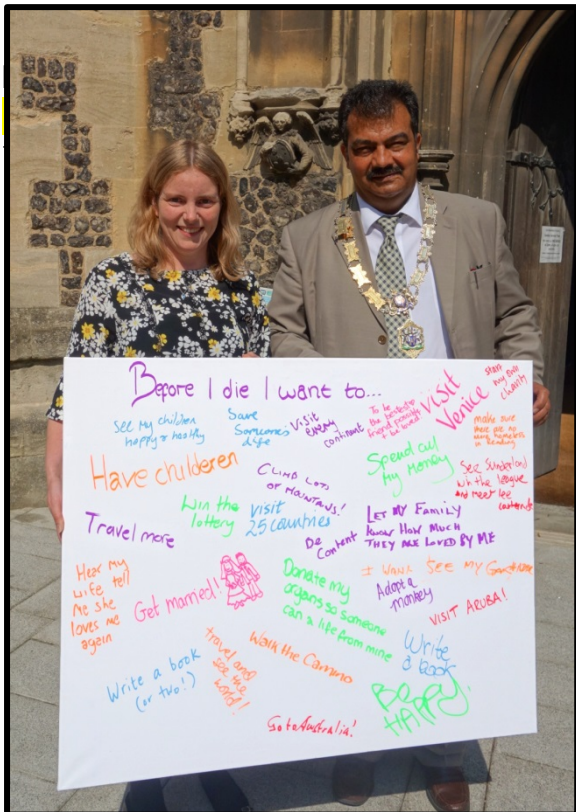 Before I die I want to...
See my children
happy & healthy
Save
Someones
life
Visit
every
continent
To be
the bestest
friend possible
& be loved
Visit
Venice
start
my own
charity
make sure
there are no
young homeless
in Reading
Have chilideren
CLIMB LOTS
OF MOUNTAINS!
Spend all
My Money
See Sunderland
win the league
and meet lee
Travel more
Win the
lottery
visit
25 countries
Be
Content
LET MY FAMILY
KNOW HOW MUCH
THEY ARE LOVED BY ME
Hear my
wife tell
me she
loves me
again
Get Married!
Donate my
organs so someone
can a life from mine
I WANT SEE MY
Adopt a
monkey
VISIT ARUBA!
Write a book
(or two!)
travel and
see the
world!
Walk the Camino
Write
a book
Be
HAPPY!
Go to Australia!